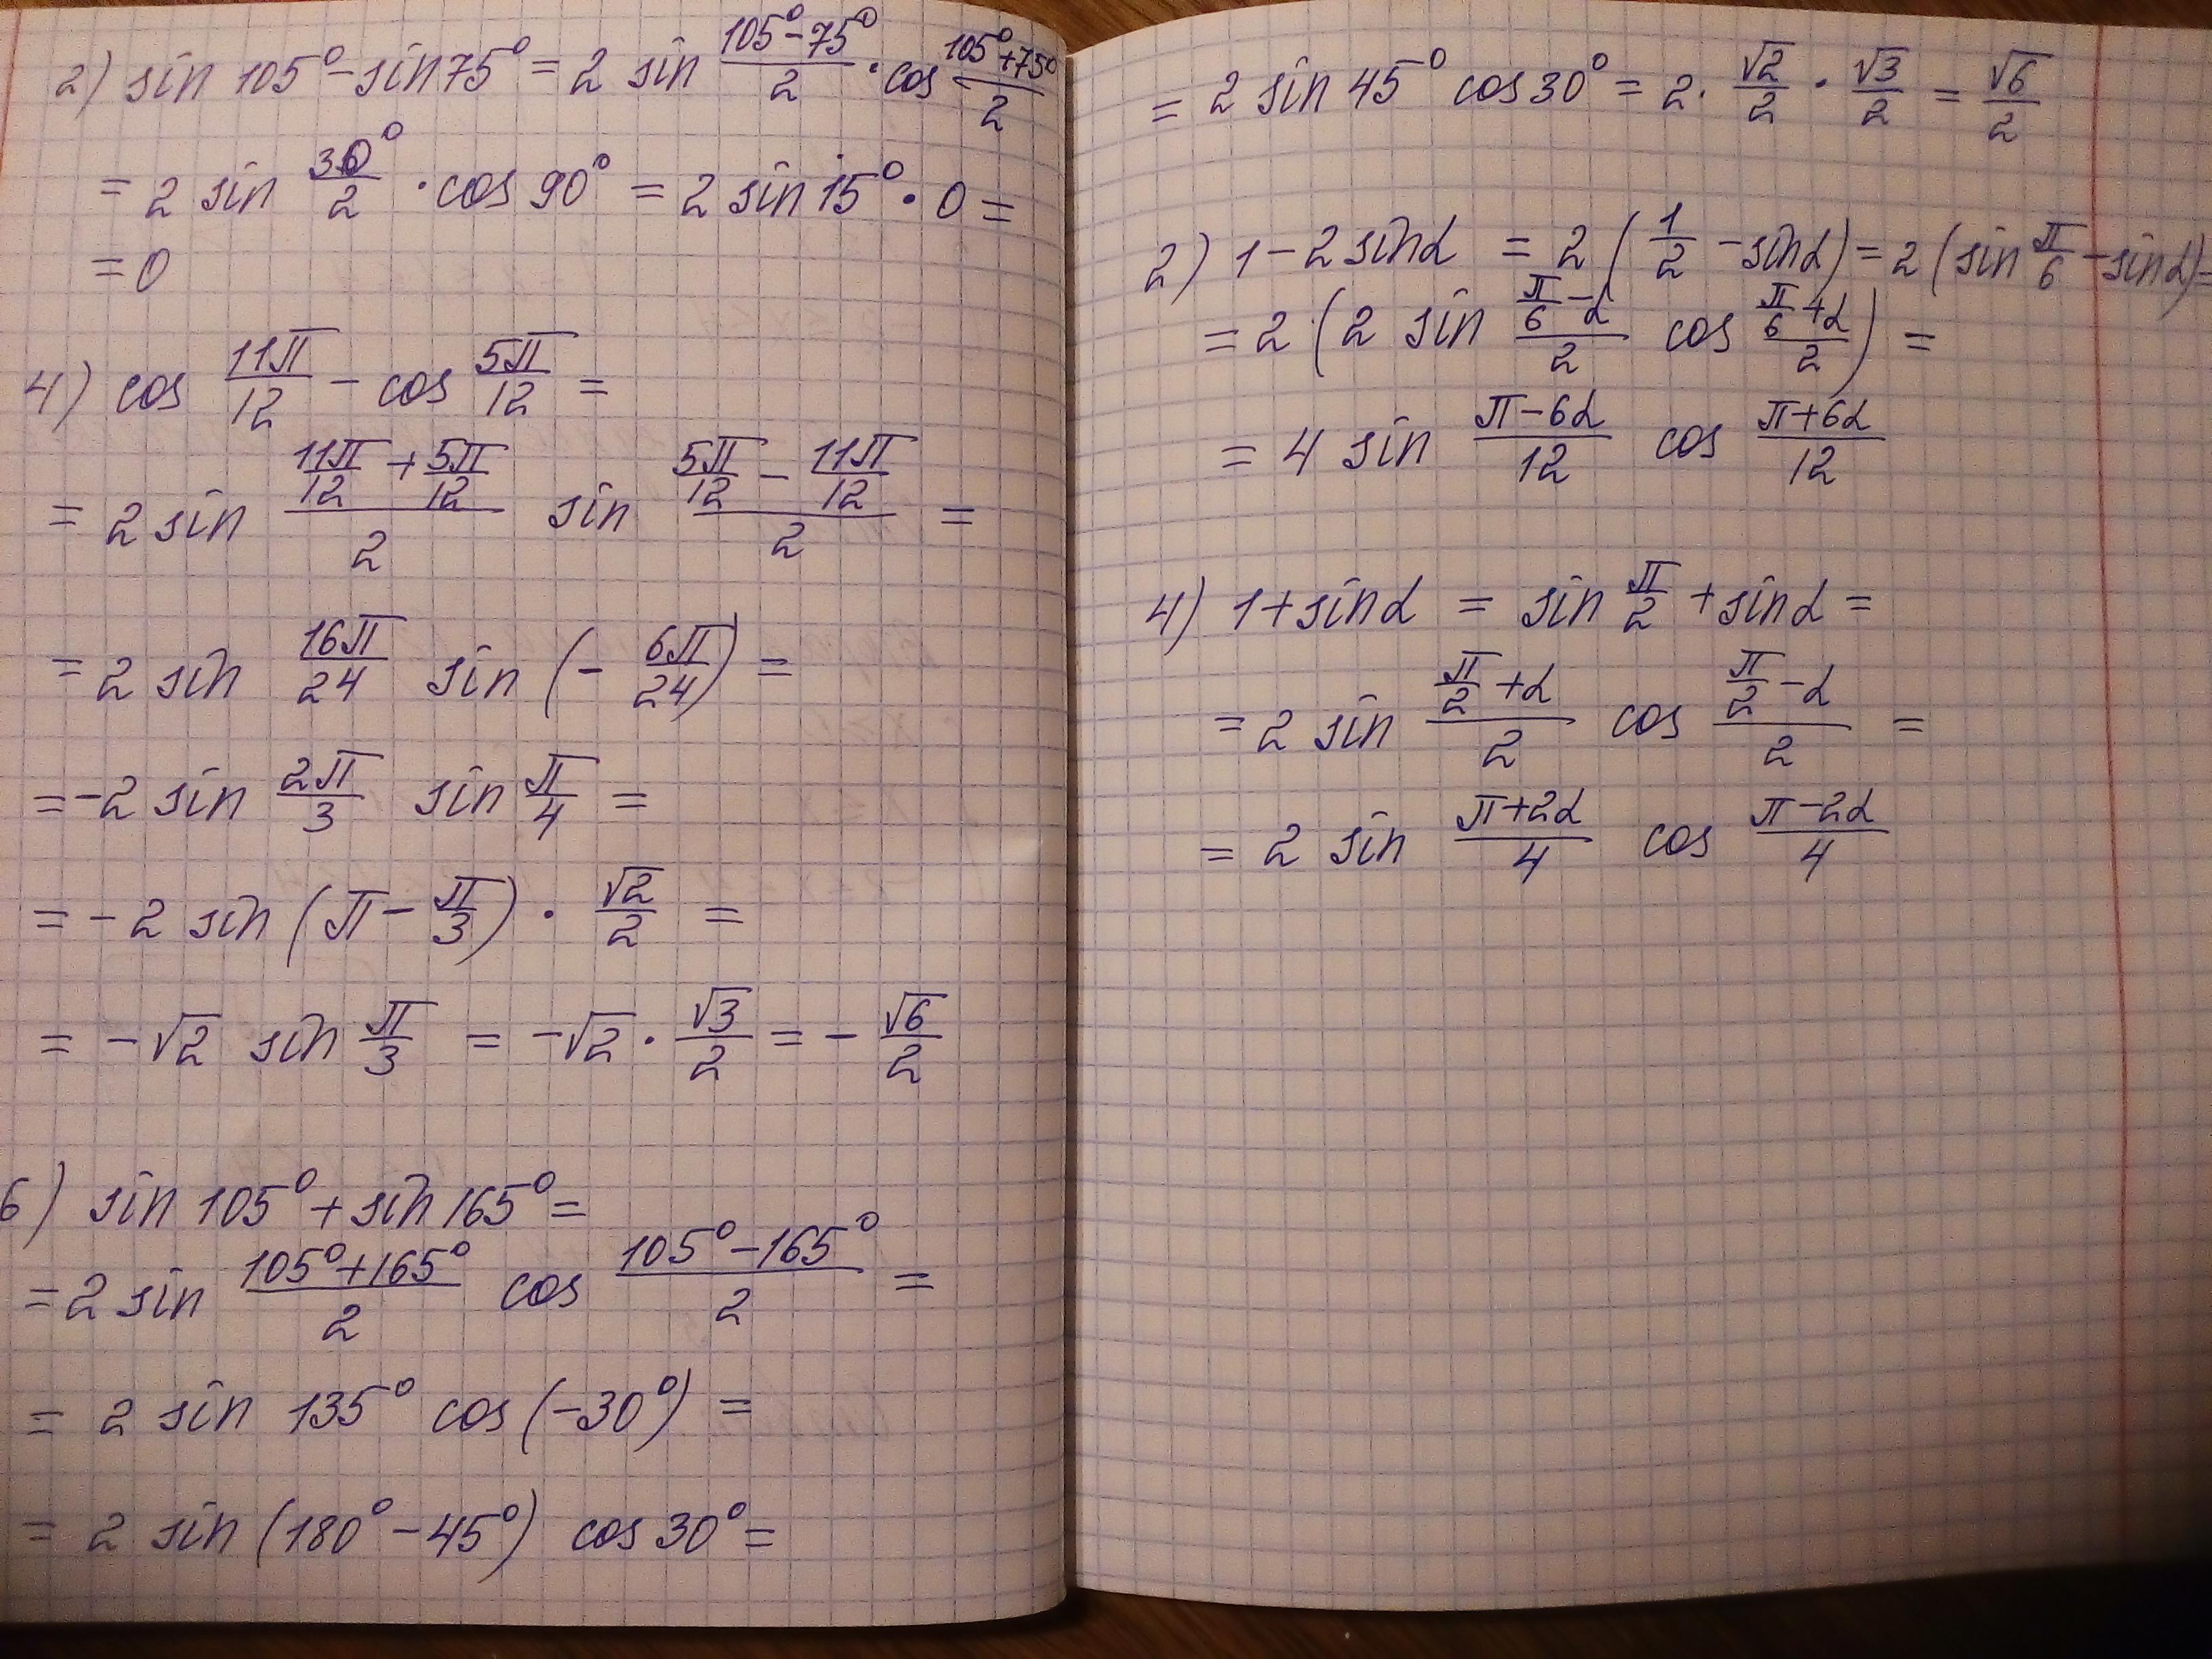 2) sin 105° - sin 75° = 2 sin (105° - 75°)/2 · cos (105° + 75°)/2
= 2 sin 30°/2 · cos 90° = 2 sin 15° · 0 =
= 0
4) cos 11π/12 - cos 5π/12 =
= 2 sin (11π/12 + 5π/12)/2 sin (5π/12 - 11π/12)/2 =
= 2 sin 16π/24 sin (- 6π/24) =
= -2 sin 2π/3 sin π/4 =
= -2 sin (π - π/3) · √2/2 =
= -√2 sin π/3 = -√2 · √3/2 = - √6/2
6) sin 105° + sin 165° =
= 2 sin (105° + 165°)/2 cos (105° - 165°)/2 =
= 2 sin 135° cos (-30°) =
= 2 sin (180° - 45°) cos 30° =
= 2 sin 45° cos 30° = 2 · √2/2 · √3/2 = √6/2
2) 1 - 2 sin α = 2 (1/2 - sin α) = 2 (sin π/6 - sin α) =
= 2 (2 sin (π/6 - α)/2 cos (π/6 + α)/2) =
= 4 sin (π - 6α)/12 cos (π + 6α)/12
4) 1 + sin α = sin π/2 + sin α =
= 2 sin (π/2 + α)/2 cos (π/2 - α)/2 =
= 2 sin (π + 2α)/4 cos (π - 2α)/4